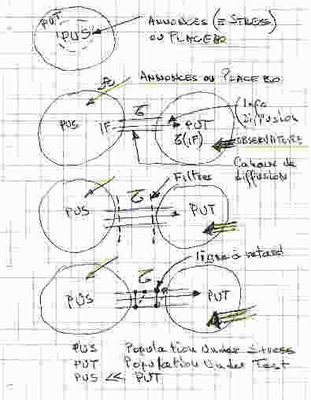 PUT
PUS
ANNONCES (= STRESS)
OU PLACEBO
ANNONCES OU PLACEBO
PUS
IF
τ
PUT
τ(IF)
Info
Diffusion
OBSERVATEUR
Canaux de
diffusion
PUS
τ
Filtres
PUT
PUS
τ
ligne à retard
PUT
PUS Population Under Stress
PUT Population Under Test
PUS << PUT